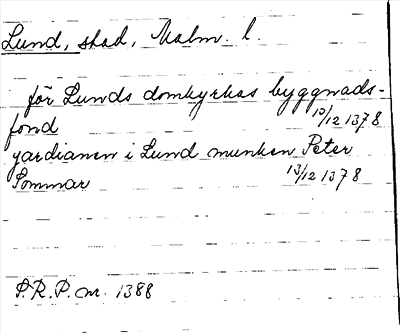 Lund, stad, Malm. l.
för Lunds domkyrkas byggnads-
fond 13/12 1378
gardianen i Lund munken Peter
Sommar 13/12 1378
P.R.P. nr. 1388